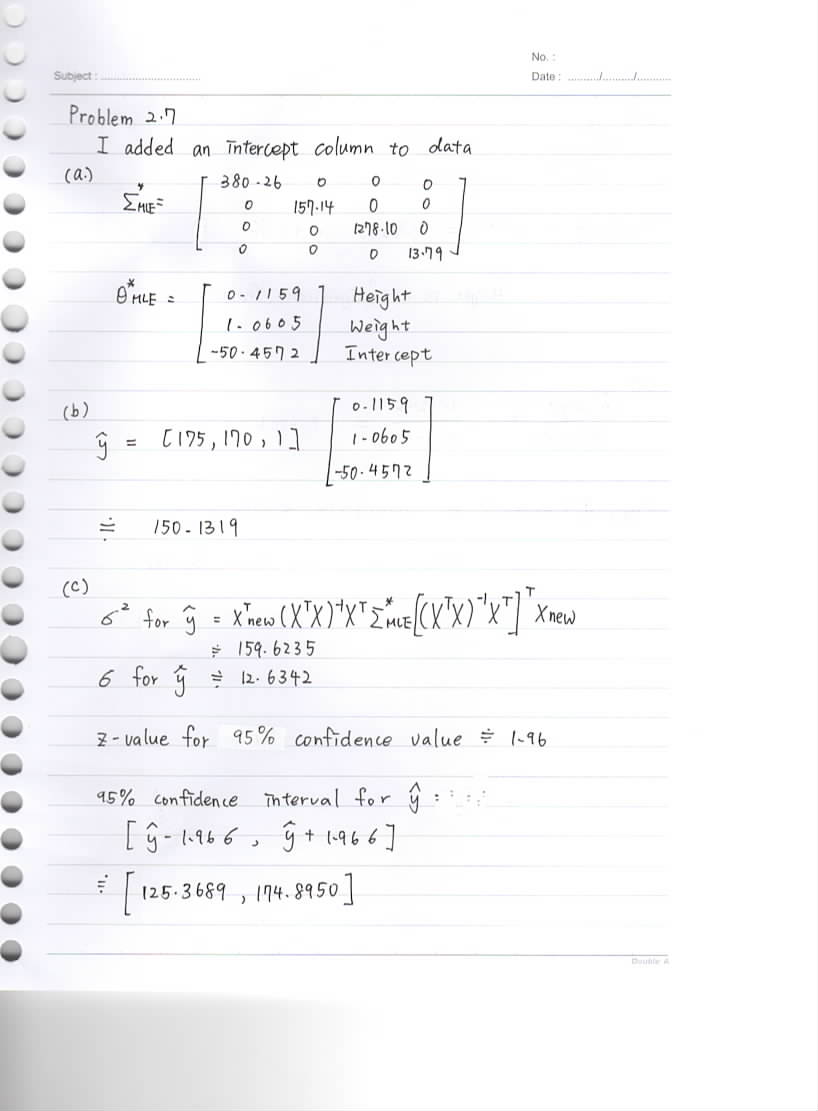 No. :
Subject : ................................ Date : ........../........../..........
Problem 2.7
I added an intercept column to data
(a.)
Σ*MLE = [ 380.26 0 0 0
0 157.14 0 0
0 0 1278.10 0
0 0 0 13.79 ]
θ*MLE = [ 0.1159 Height
1.0605 Weight
-50.4572 ] Intercept
(b)
ŷ = [175, 170, 1] [ 0.1159
1.0605
-50.4572 ]
≑ 150.1319
(c)
σ² for ŷ = Xᵀnew (XᵀX)⁻¹Xᵀ Σ*MLE [(XᵀX)⁻¹Xᵀ]ᵀ Xnew
≑ 159.6235
σ for ŷ ≑ 12.6342
z-value for 95% confidence value ≑ 1.96
95% confidence interval for ŷ :
[ ŷ - 1.96σ , ŷ + 1.96σ ]
≑ [ 125.3689 , 174.8950 ]
Double A